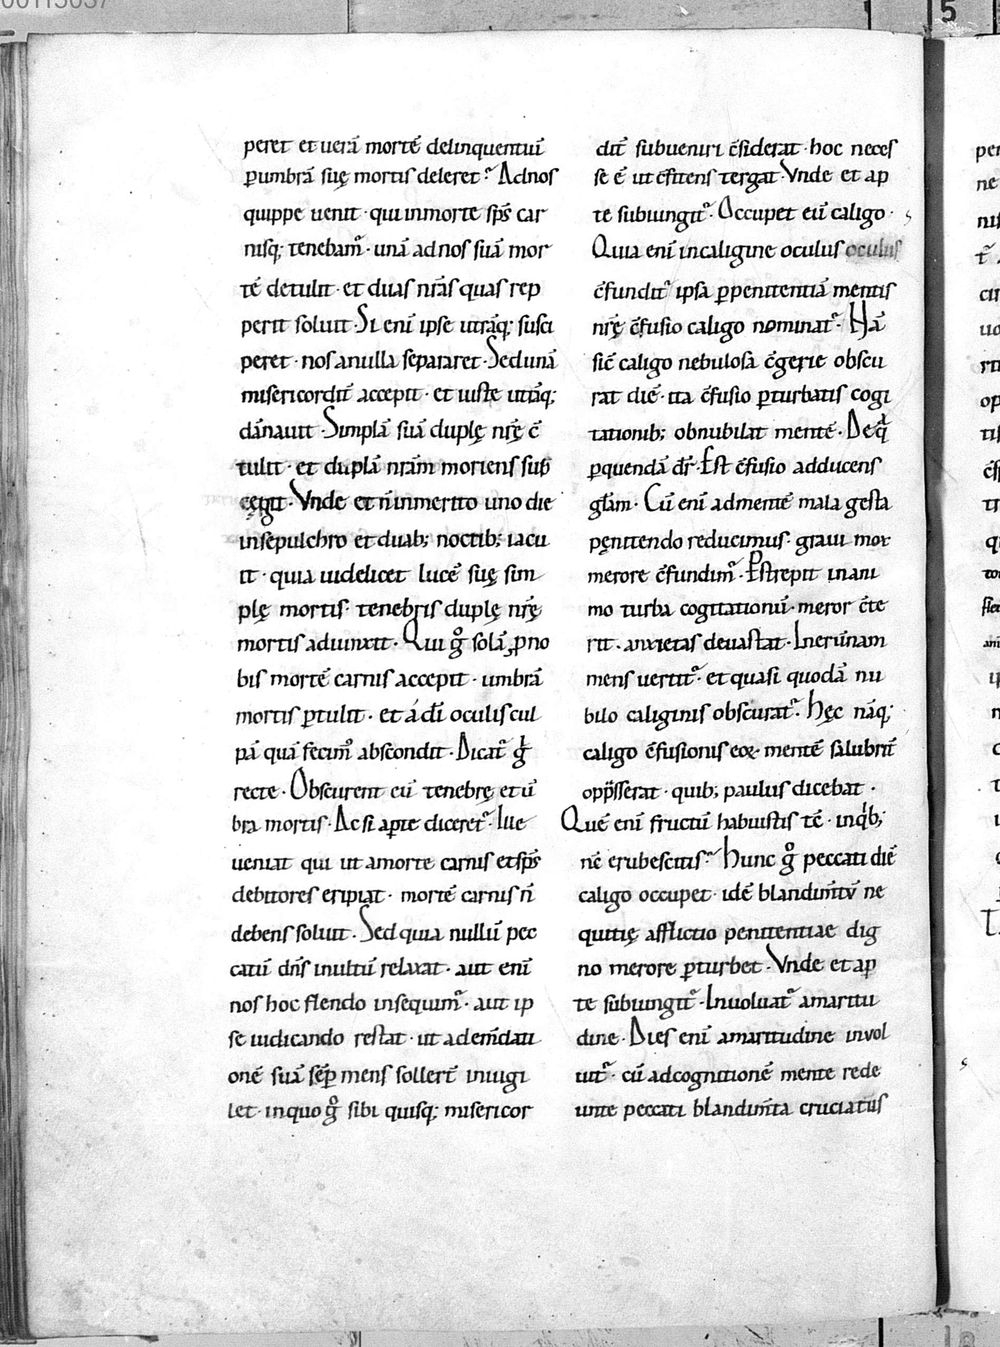 00113037
5
peret et uerā mortē delinquentiū
ꝑ umbrā suę mortis deleret. Ad nos
quippe uenit · qui in morte sp̄s car
nisq; tenebam̄ · unā ad nos suā mor
tē detulit · et duas nr̄as quas rep
perit soluit · Si eni ipse utrāq; susci
peret · nos a nulla separaret · Sed unā
misericordit̄ accepit · et iuste utrāq;
dānauit · Simplā suā duplę nrę ̄c
tulit · et duplā nrām moriens sub
ęgit · Vnde et n̄ inmerito uno die
in sepulchro et duab; noctib; iacu
it · quia uidelicet lucē suę sim
plę mortis · tenebris duplę nrę
mortis adiunxit · Qui g̊ solā ꝓ no
bis mortē carnis accepit · umbrā
mortis ꝑtulit · et a dī oculis cul
pā quā fecim̄ abscondit · Dicat̄ g̊
recte · Obscurent eū tenebrę et ū
bra mortis · Ac si aꝑte diceret̄ · Ille
ueniat qui ut a morte carnis et sp̄s
debitores eripiat · mortē carnis n̄
debens soluit · Sed quia nullū pec
catū dn̄s inultū relaxat · aut eni
nos hoc flendo insequim̄ · aut ip
se iudicando restat · ut ad em̄dati
onē suā sēp mens sollert̄ inuigi
let · in quo g̊ sibi quisq; misericor
dit̄ subueniri c̄siderat · hoc neces
se ē ut c̄fitens tergat · Vnde et ap
te subiungit̄ · Occupet eū caligo ·
Quia eni in caligine oculus oculus
c̄fundit̄ ipsa ꝑ penitentiā mentis
nrę c̄fusio caligo nominat̄ · Nā
sic̄ caligo nebulosa c̄gerie obscu
rat diē · ita c̄fusio ꝑturbatis cogi
tationib; obnubilat mentē · De q̄
ꝑ quendā dr̄ · Est c̄fusio adducens
glām · Cū eni ad mentē mala gesta
pęnitendo reducimus · graui mox
merore c̄fundim̄ · Pstrepit in ani
mo turba cogitationū · meror c̄te
rit · anxietas deuastat · In erūnam
mens uertit̄ · et quasi quodā nu
bilo caliginis obscurat̄ · Hęc nāq;
caligo c̄fusionis eoꝝ mentē salubrit̄
opp̄sserat · quib; paulus dicebat ·
Quē eni fructū habuistis tē · in qb;
nē erubescitis · Hunc g̊ peccati diē
caligo occupet · idē blandim̄tū ne
quitię afflictio penitentiae dig
no merore ꝑturbet · Vnde et ap
te subiungit̄ · Inuoluat̄ amaritu
dine · Dies eni amaritudine inuol
uit̄ · cū ad cognitionē mente rede
unte peccati blandim̄ta cruciatus